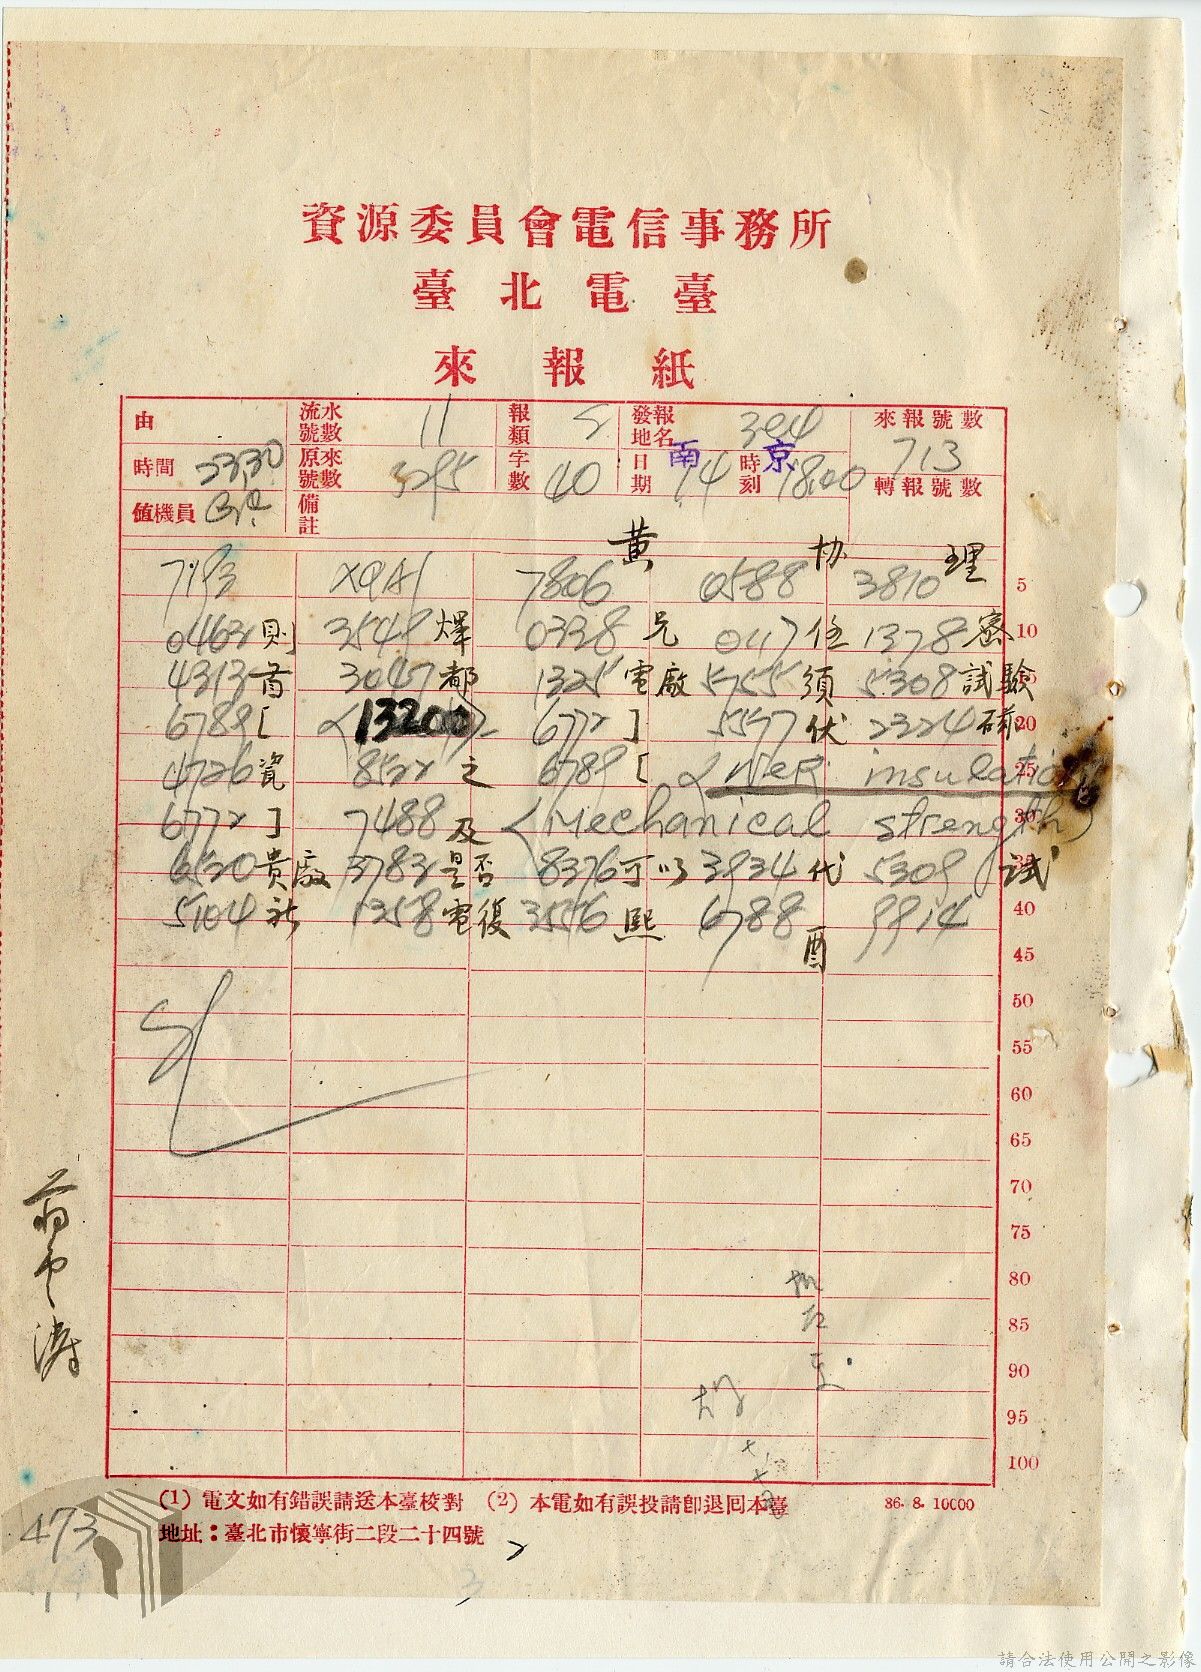 資源委員會電信事務所
臺北電臺
來報紙
由 流水號數 11 報類 S 發報地名 304 南京 來報號數 713
時間 2330 原來號數 3295 字數 40 日期 14 時刻 1800 轉報號數
值機員 備註
黃 協 理
7193 XQAH 7806 0588 3810 5
0463 則 3549 燡 0338 兄 0117 任 1378 密 10
4313 首 3047 都 1325 電廠 5755 須 5308 試驗
6789 [ <13200> 6772 ] 5577 伏 2324 20
4726 瓷 8522 之 6789 [ <Wer insulation 25
6772 ] 7488 及 <Mechanical strength> 30
6520 貴廠 3783 是否 8376 可以 3934 代 5309 試
5104 祈 1358 電復 3556 熙 6788 酉 9914 40
45
50
55
60
65
70
75
80
85
90
95
100
(1) 電文如有錯誤請送本臺校對 (2) 本電如有誤投請卽退回本臺 36. 8. 10000
地址：臺北市懷寧街二段二十四號
473
474
3
請合法使用公開之影像